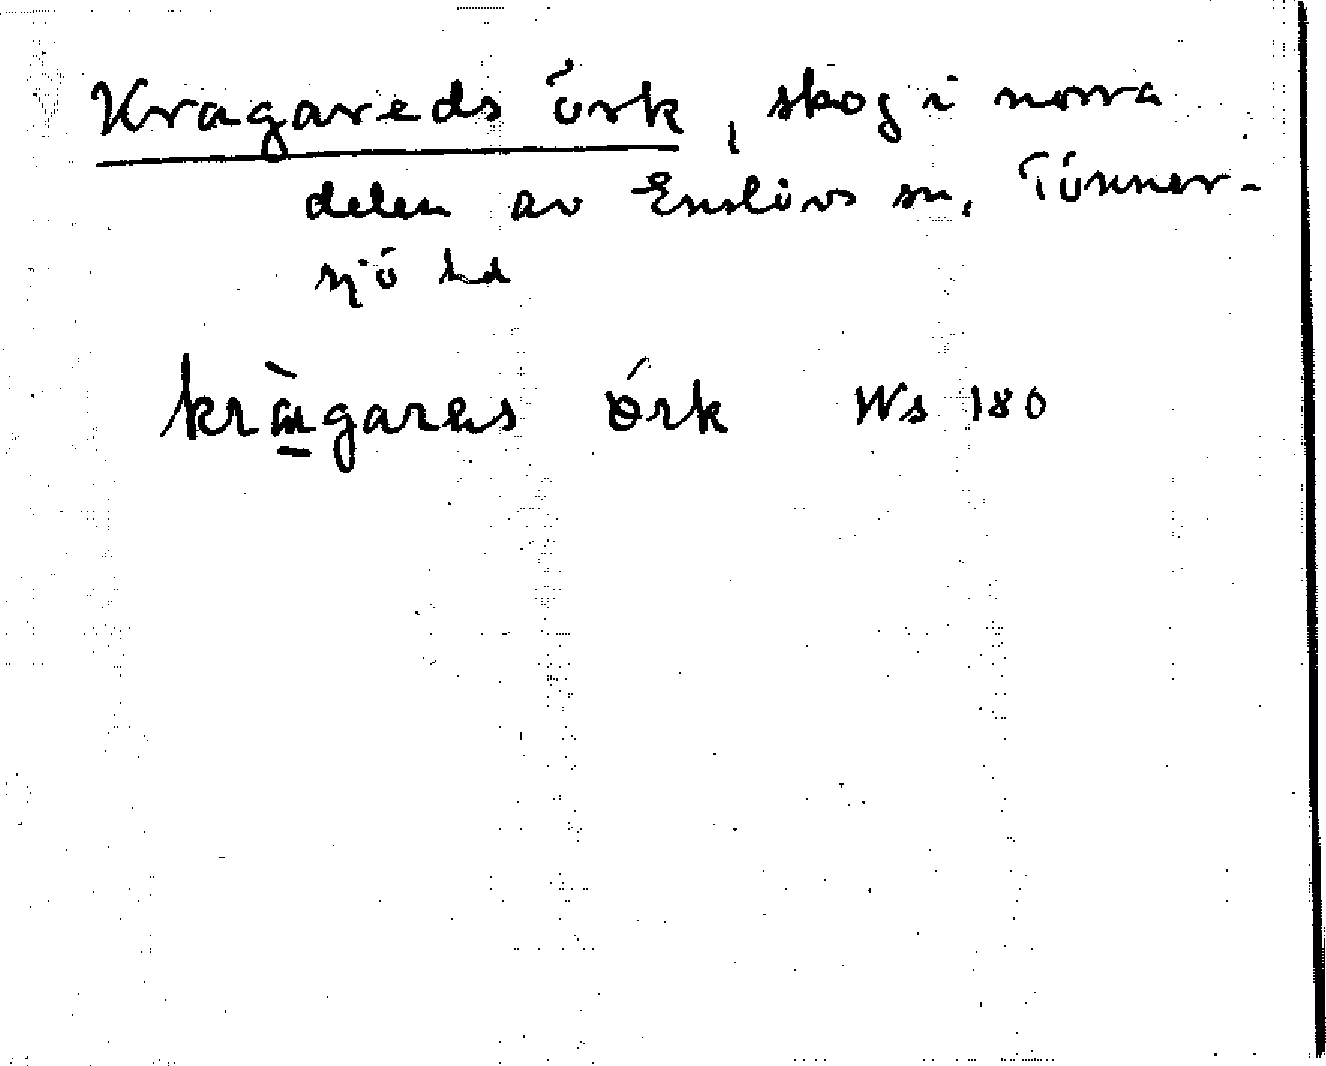 Kragareds örk, skog i norra
delen av Enslövs sn, Tönner-
sjö hd
kràgares órk Ws 180